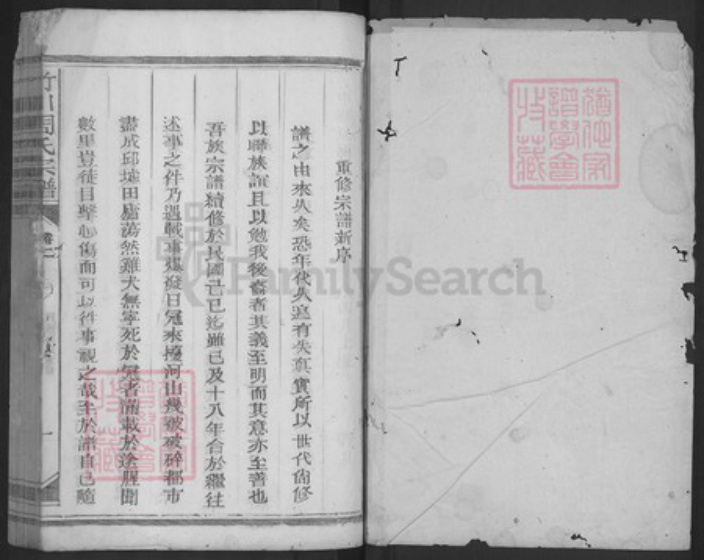 重修宗譜新序
譜之由來久矣恐年代久遠有失真實所以世代倘修
以聯族誼且以勉我後裔者其義至明而其意亦至善也
吾族宗譜續修於民國己巳迄雖已及十八年合於繼往
述事之件乃遇戰事爆發日冠來擾河山幾被破碎都市
盡成邱墟田廬蕩然雞犬無寧死於冠者滿載於途腥聞
數里豈徒目擊心傷而可以往事視之哉至於譜自己隨
周氏宗譜
卷一
一
譜學會
收藏
FamilySearch